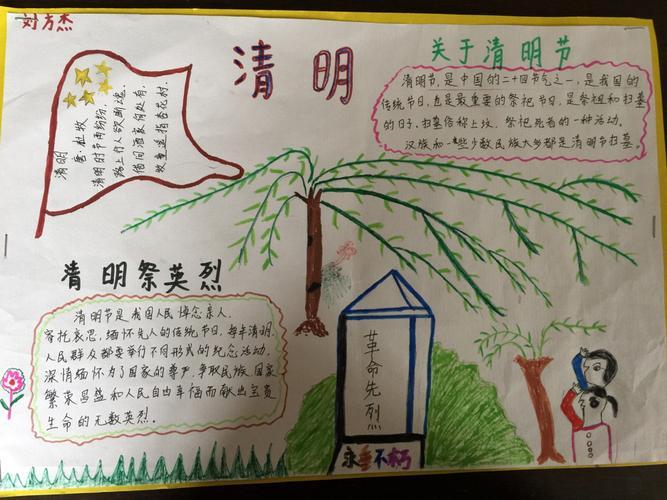 刘方杰
清明
清明
唐·杜牧
清明时节雨纷纷,
路上行人欲断魂。
借问酒家何处有,
牧童遥指杏花村。
关于清明节
清明节,是中国的二十四节气之一,是我国的
传统节日,也是最重要的祭祀节日,是祭祖和扫墓
的日子。扫墓俗称上坟,祭祀死者的一种活动。
汉族和一些少数民族大多都是清明节扫墓。
清明祭英烈
清明节是我国人民悼念亲人、
寄托哀思,缅怀先人的传统节日,每年清明,
人民群众都要举行不同形式的纪念活动,
深情缅怀为了国家的尊严,争取民族,国家
繁荣昌盛和人民自由幸福而献出宝贵
生命的无数英烈。
革命先烈
永垂不朽